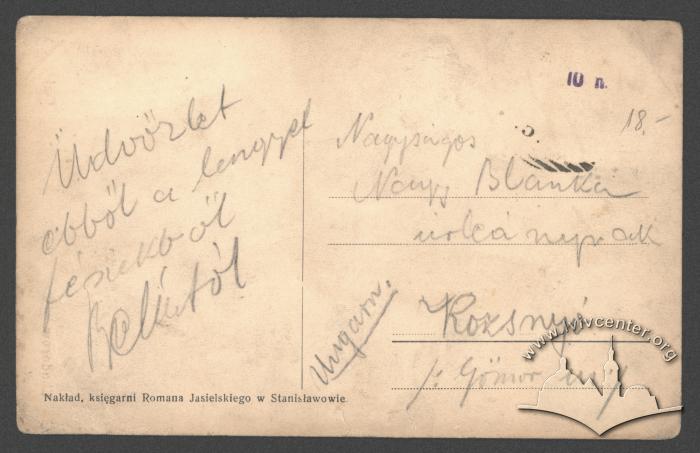 Üdvözlet
ebből a lengyel
fészekből
Bélától
Nagyságos
Nagy Blanka
urleánynak
Rozsnyó
Gömör
Ungarn.
10 n.
18.-
Nakład, księgarni Romana Jasielskiego w Stanisławowie
www.lvivcenter.org